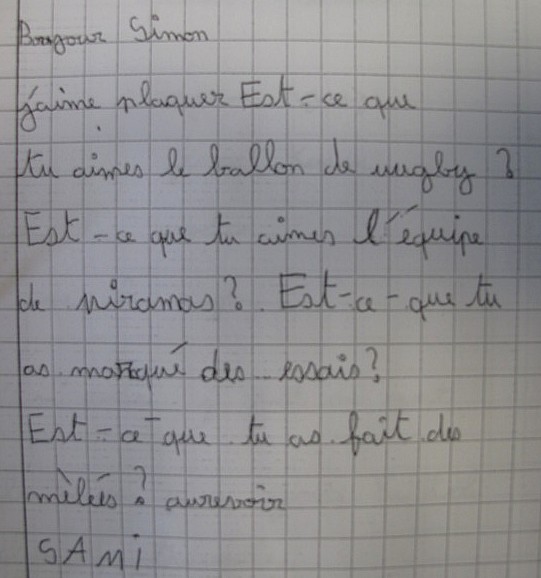 Bonjour Simon
j'aime plaquer Est-ce que
tu aimes le ballon de rugby ?
Est-ce que tu aimes l'équipe
de miramas? Est-ce-que tu
as marqué des essais?
Est-ce-que tu as fait des
mêlées? aurevoir
SAMi